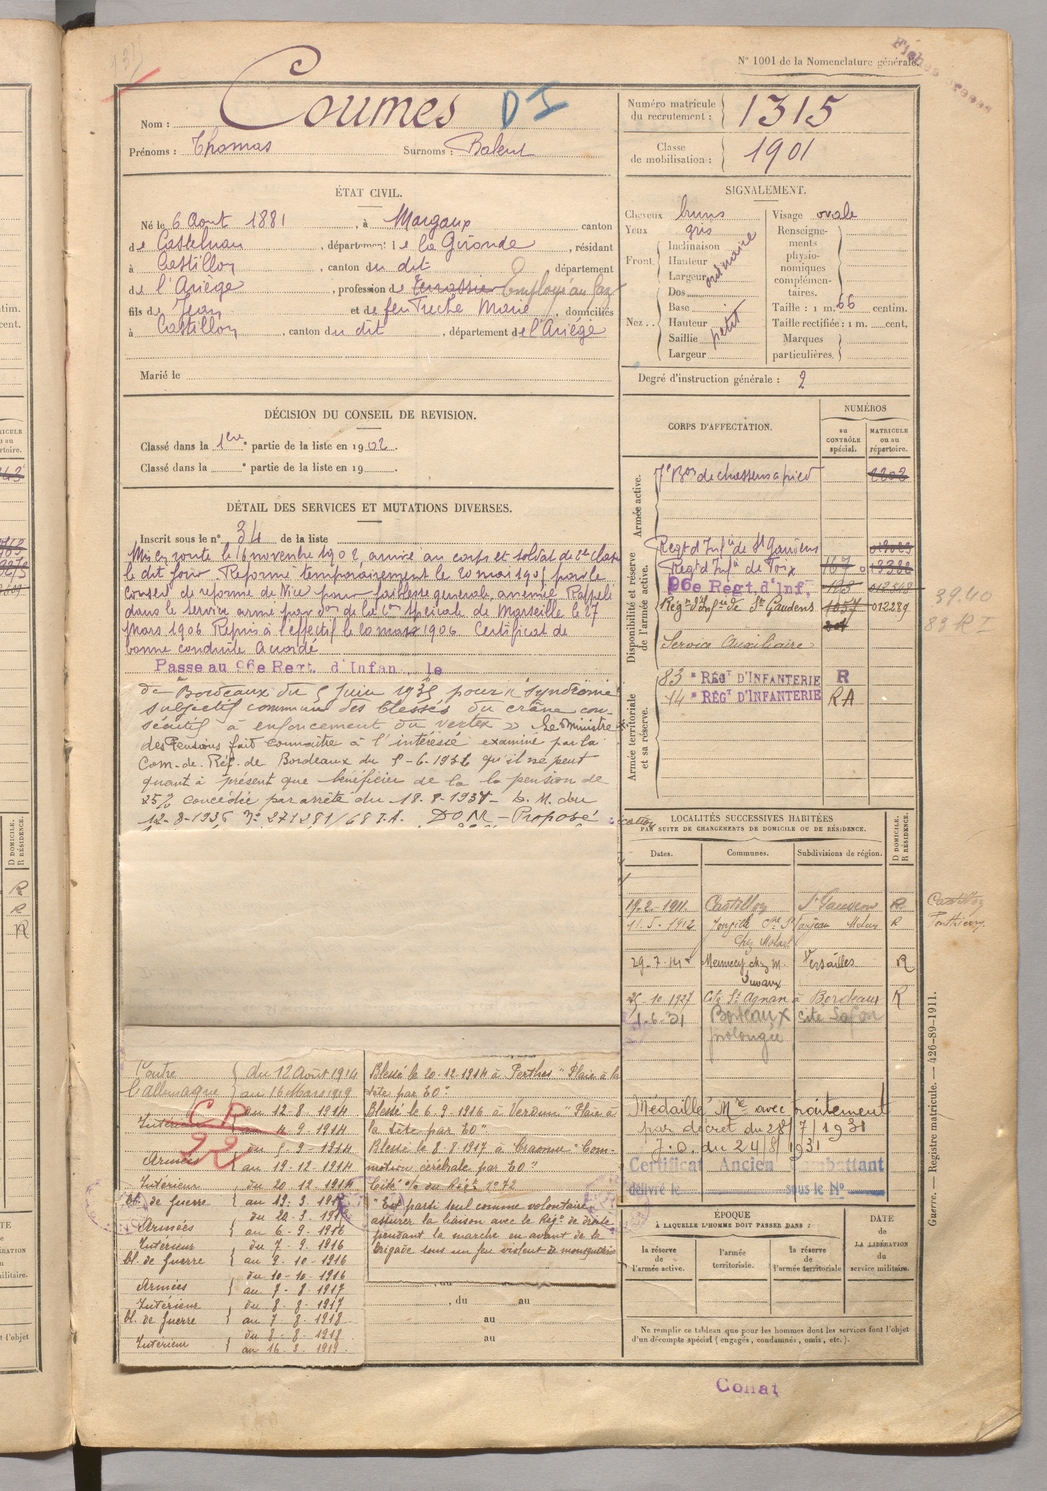 N° 1001 de la Nomenclature générale.
Nom : Coumes D I
Prénoms : Thomas Surnoms : Balent
Numéro matricule du recrutement : 1315
Classe de mobilisation : 1901
ÉTAT CIVIL.
Né le 6 Août 1881, à Margaux canton
de Castelnau, département de la Gironde, résidant
à Castillon, canton du dit département
de l'Ariège, profession de Terrassier Employé au Gaz
fils de Jean et de feu Treche Marie, domiciliés
à Castillon, canton du dit, département de l'Ariège
Marié le
SIGNALEMENT.
Cheveux bruns
Yeux gris
Front Inclinaison
Hauteur
Largeur ordinaire
Nez Dos
Base
Hauteur petit
Saillie
Largeur
Visage ovale
Renseignements physionomiques complémentaires.
Taille : 1 m. 66 centim.
Taille rectifiée : 1 m. cent.
Marques particulières
Degré d'instruction générale : 2
DÉCISION DU CONSEIL DE REVISION.
Classé dans la 1ère partie de la liste en 1902.
Classé dans la * partie de la liste en 19
CORPS D'AFFECTATION.
NUMÉROS
au CONTRÔLE spécial.
MATRICULE ou au répertoire.
Armée active.
7e Bon de chasseurs à pied
Disponibilité et réserve de l'armée active.
Regt d'Infie de St Gaudens
Regt d'Infie de Foix
96e Regt. d'Inf.
Regt d'Infie de St Gaudens 1057 012289
Service Auxiliaire
Armée territoriale et sa réserve.
83 e RÉGt D'INFANTERIE R
14 e RÉGt D'INFANTERIE RA
39.40
83 R I
DÉTAIL DES SERVICES ET MUTATIONS DIVERSES.
Inscrit sous le n° 34 de la liste
Mis en route le 16 novembre 1902, arrivé au corps et soldat de 2e classe
le dit jour. Réformé temporairement le 20 mars 1905 par le
conseil de réforme de Nice pour faiblesse générale, anémie. Rappelé
dans le service armé par don de la Con spéciale de Marseille le 27
mars 1906 Repris à l'effectif le 20 mars 1906 Certificat de
bonne conduite Accordé
Passe au 96e Regt. d'Infan. le
de Bordeaux du 5 Juin 1935 pour "syndrome
subjectif commun des blessés du crâne con-
sécutif à enfoncement du vertex » Le Ministre
des Pensions fait connaître à l'intéressé examiné par la
Com. de Réf. de Bordeaux du 5-6-1935 qu'il ne peut
quant à présent que bénéficier de la pension de
25% concédée par arrêté du 18-8-1931 - D.M. du
12-8-1935 N° 271281/687.A. Proposé
LOCALITÉS SUCCESSIVES HABITÉES
PAR SUITE DE CHANGEMENTS DE DOMICILE OU DE RÉSIDENCE.
D DOMICILE. R RÉSIDENCE.
Dates. Communes. Subdivisions de région.
19.2.1911. Castillon St Gaudens R
11.5.1912 Melun R
29.7.14 Mennecy chez M. Versailles R
25.10.1927 Cité St Agnan à Bordeaux R
1.6.31 Bordeaux cité Lafon
prolongée
Médaille Mre avec traitement
par décret du 28/7/1931
J.O. du 24/8/1931
Certificat Ancien Combattant
délivré le sous le N°
Contre l'Allemagne du 12 Août 1914 au 16 Mars 1919
C R
22
Intérieur du 12.8.1914 au 4.9.1914
Armées du 5-9-1914 au 19.12.1914
Intérieur bl. de Guerre du 20.12.1914
Armées au 6-9-1916
Intérieur bl. de Guerre du 7.9.1916 au 9.10-1916
Armées du 10-10.1916 au 7-8-1917
Intérieur bl. de Guerre du 8-8-1917 au 7-8-1918
Intérieur du 8-8-1918 au 16.3.1919
Blessé le 20.12.1914 à Perthes "Plaie à la
tête par EO"
Blessé le 6.9.1916 à Verdun "Plaie à
la tête par EO"
Blessé le 8-8-1917 à Craonne "Com-
motion cérébrale par EO"
Cité
"Est parti seul comme volontaire
assurer la liaison avec le Régt de droite
pendant la marche en avant de la
brigade sous un feu violent de mousqueterie
, du au
au
au
ÉPOQUE
À LAQUELLE L'HOMME DOIT PASSER DANS :
la réserve de l'armée active.
l'armée territoriale.
la réserve de l'armée territoriale
DATE de LA LIBÉRATION du service militaire.
Ne remplir ce tableau que pour les hommes dont les services font l'objet
d'un décompte spécial (engagés, condamnés, omis, etc.).
Guerre. — Registre matricule. — 426-89-1911.